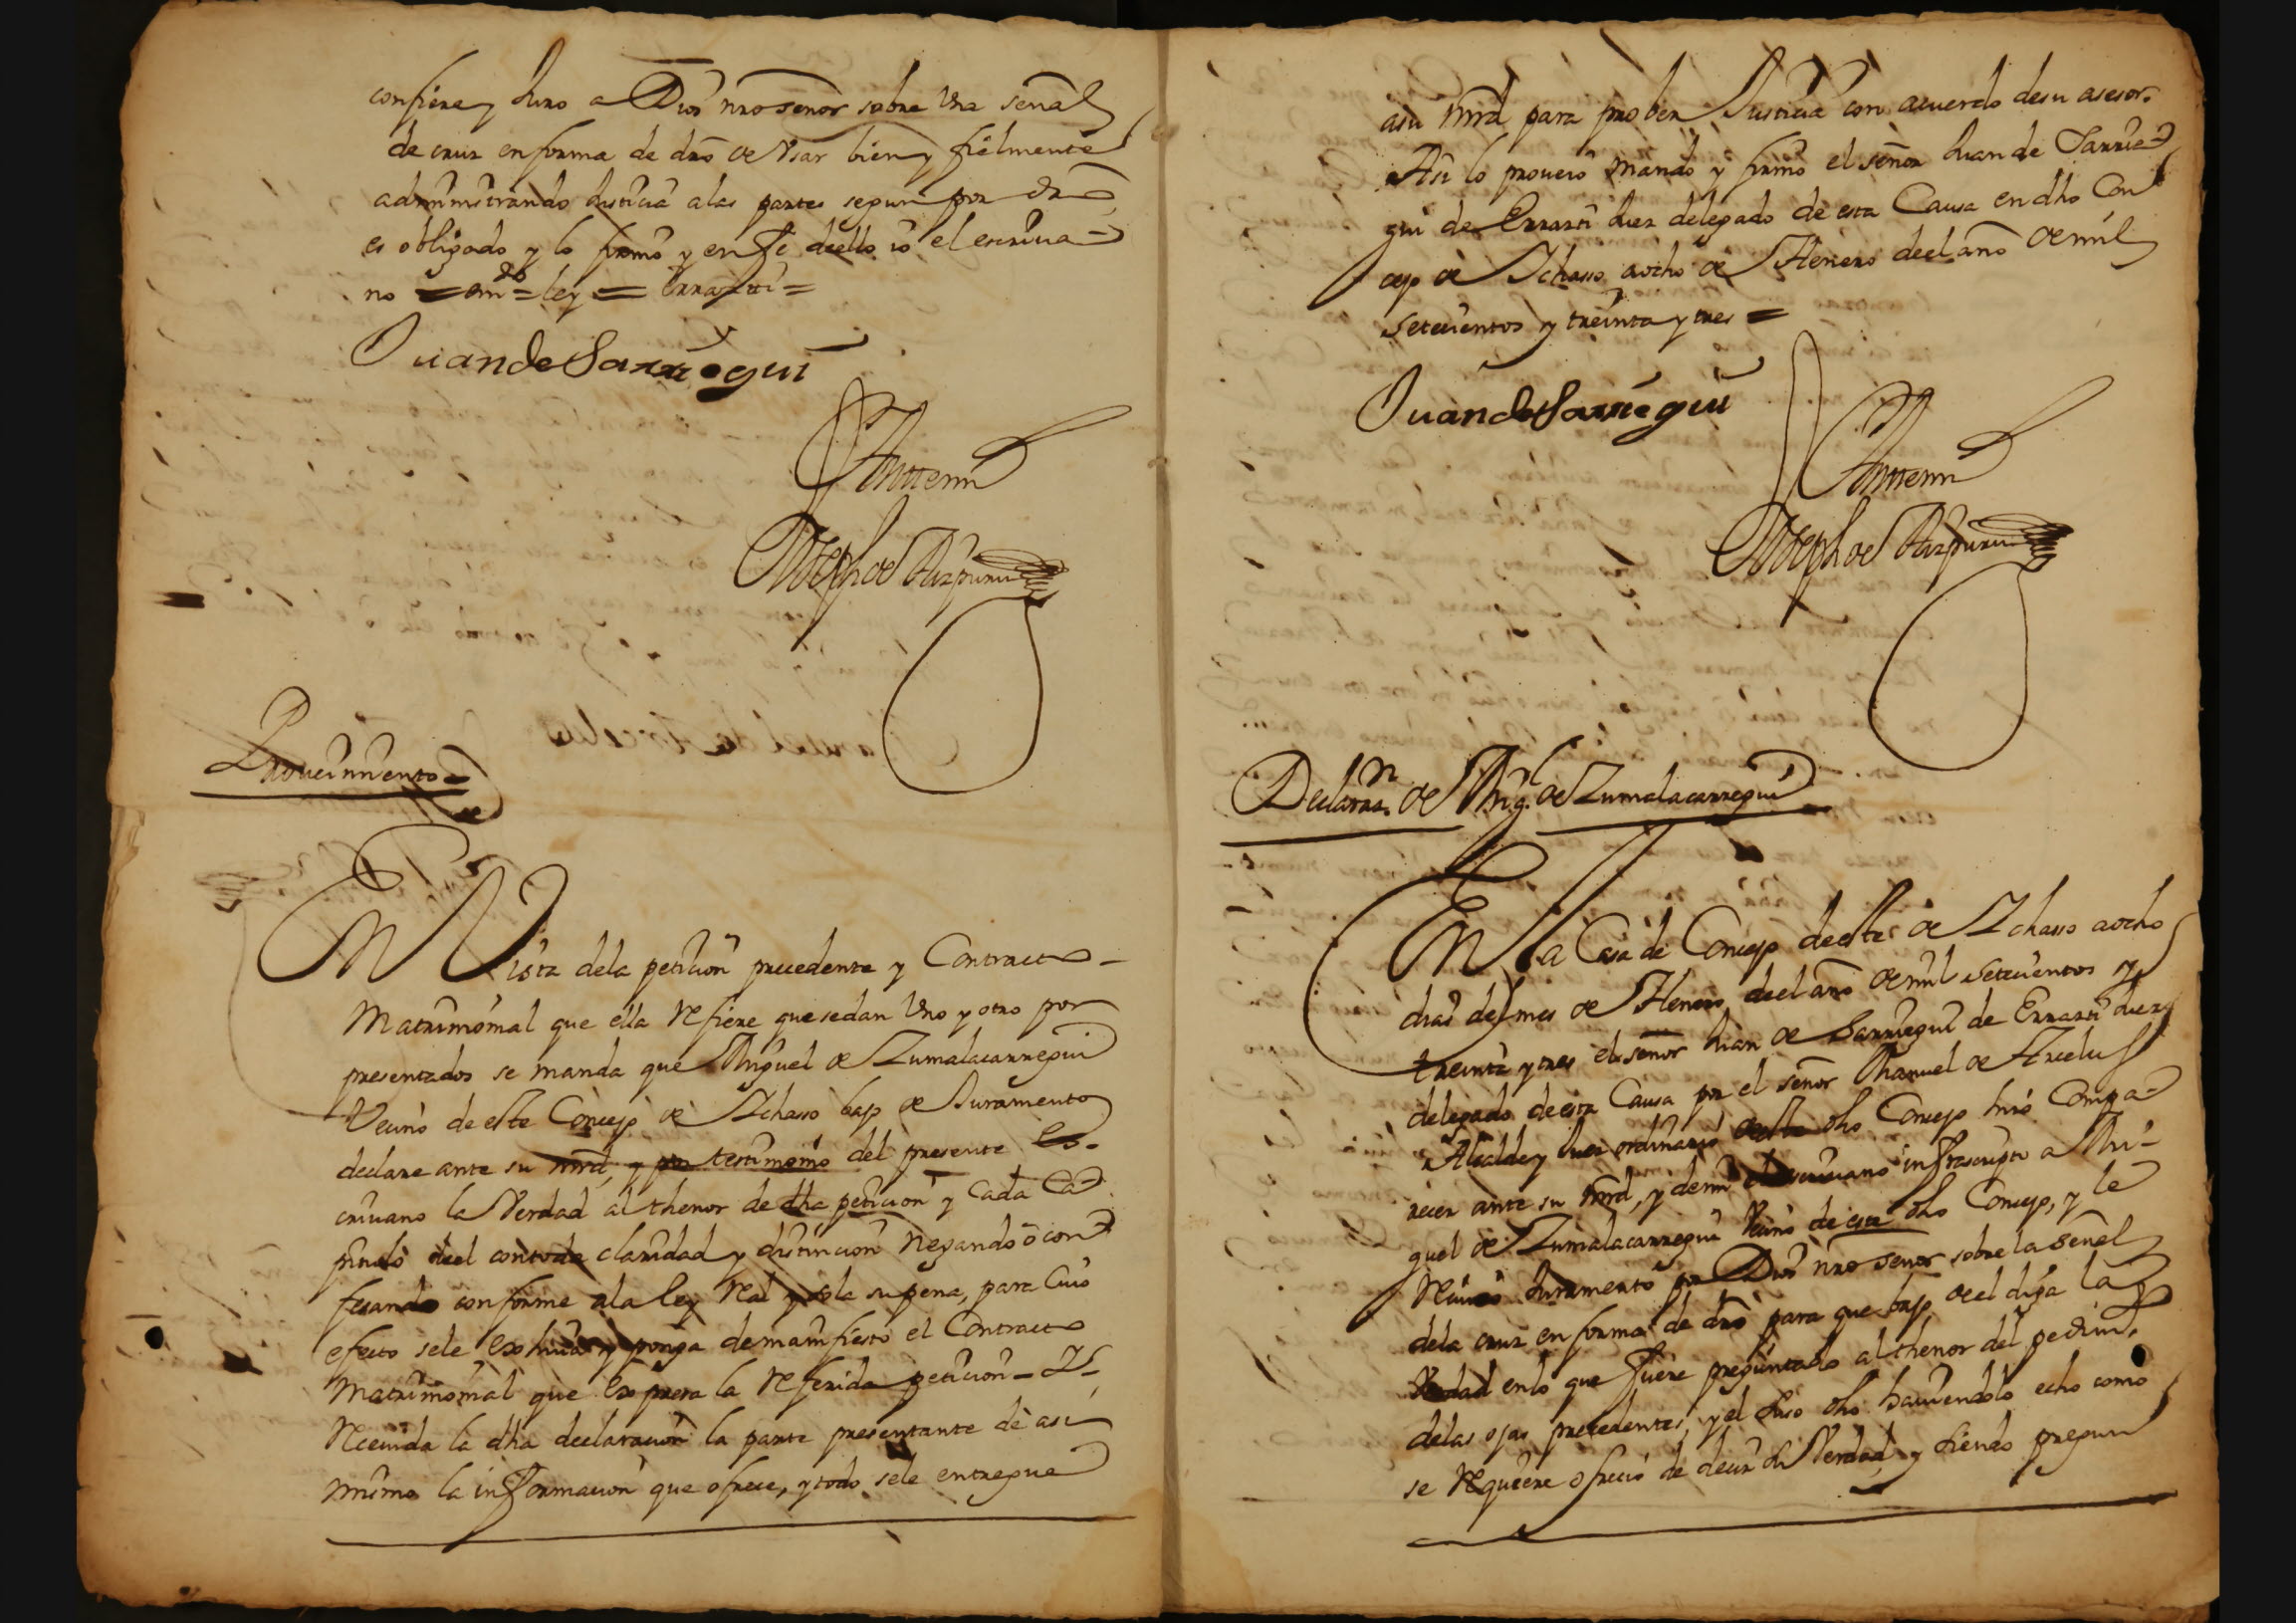 confiere y Juro a Dios nro señor sobre Vna señal
de cruz en forma de dro de Vsar bien y fielmente
administrando Justicia a las partes segun por dro
es obligado y lo firmo y en fe de ello io el escriua-
no = em.do = ley = Errazti =
Juan de Sarriegui
Antemi
Joseph de Aizpuru
Proueimiento =
En Vista de la peticion precedente y Contracto
Matrimonial que ella refiere que se dan Vno y otro por
presentados se manda que Miguel de Zumalacarregui
Vecino de este Concejo de Ichasso bajo de Juramento
declare ante su mrd, y por testimonio del presente es-
criuano la Verdad al thenor de dha peticion y cada Ca-
pitulo de el con toda claridad y distincion negando o con-
fesando conforme a la ley Real y so la su pena, para Cuio
efecto se le exhiua y ponga de manifiesto el Contracto
Matrimonial que expresa la referida peticion = Y
Receuida la dha declaracion la parte presentante de asi
mismo la informacion que ofrece, y todo se le entregue
a su mrd para prober Justicia con acuerdo de su asesor.
Asi lo proueio mando y firmo el señor Juan de Sarrie-
gui de Errazti Juez delegado de esta Causa en dho Con-
cejo de Ichasso a ocho de Henero de el año de mil
setecientos y treinta y tres =
Juan de Sarriegui
Antemi
Joseph de Aizpuru
Declaraz.n de Mig.l de Zumalacarregui
En la Casa de Concejo de este de Ichasso a ocho
dias del mes de Henero de el año de mil setecientos y
treinta y tres el señor Juan de Sarriegui de Errazti Juez
delegado de esta Causa por el señor Manuel de Arcelus
Alcalde y Juez ordinario de este dho Concejo hizo Compa-
recer ante su mrd, y de mi el escriuano infrascripto a Mi-
guel de Zumalacarregui Vecino de este dho Concejo, y le
Reciuio Juramento por Dios nro señor sobre la señal
de la cruz en forma de dro para que bajo de el diga la
Verdad en lo que fuere preguntado al thenor del pedim.to
de las ojas precedentes, y el suso dho hauiendolo echo como
se requiere ofrecio de decir la Verdad, y siendo pregun